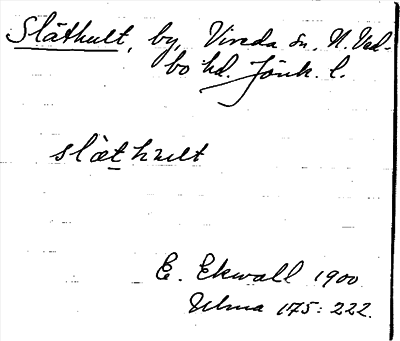 Släthult, by, Vireda sn. N. Ved-
bo hd. Jönk. l.
slæthult
E. Ekwall 1900
Ulma 175:222.